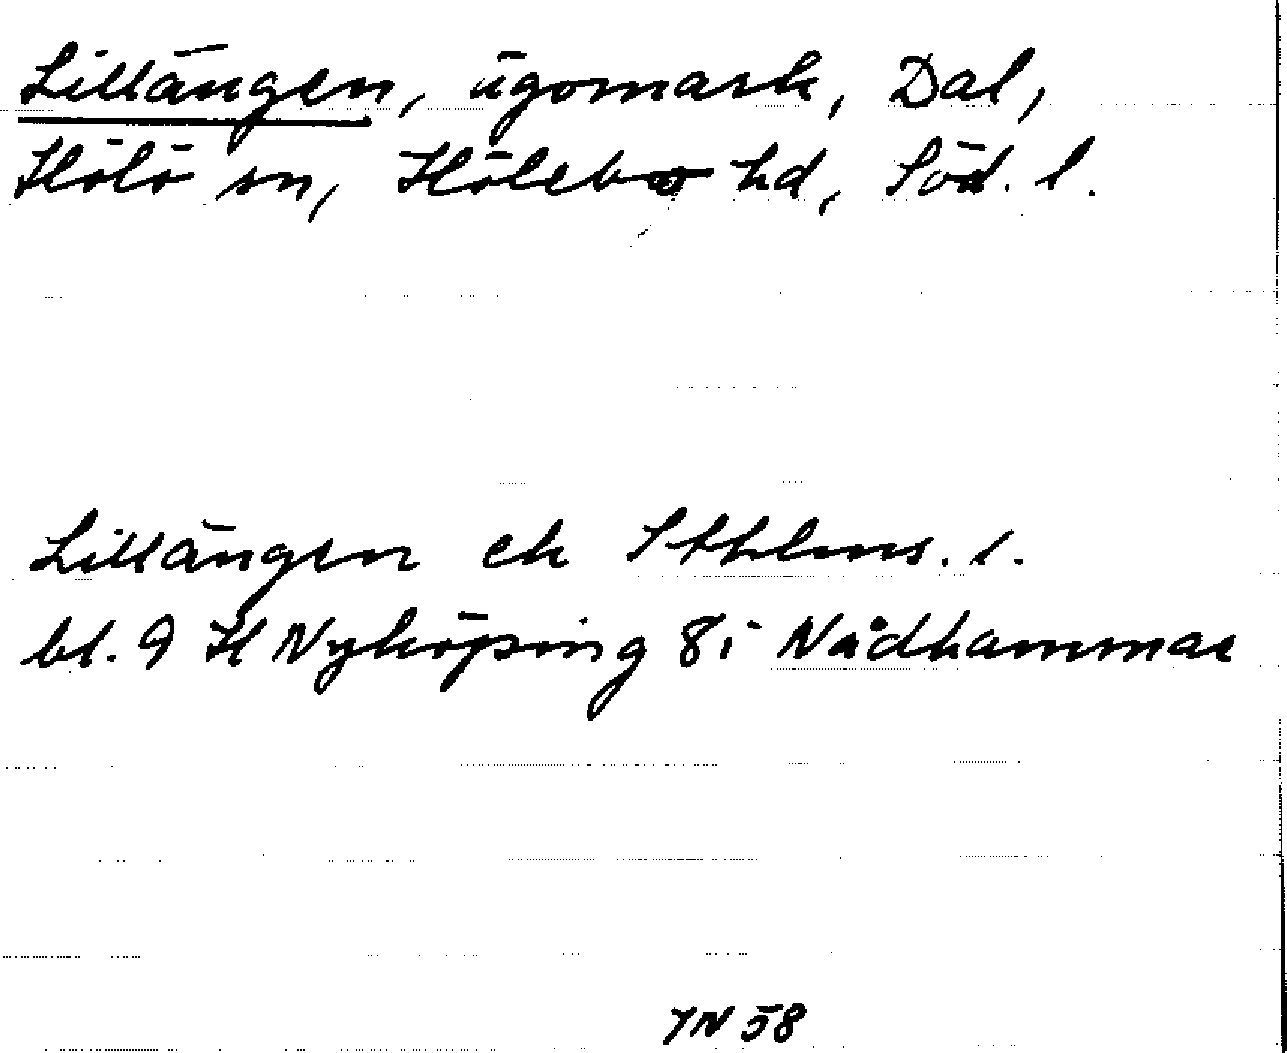 Lillängen, ägomark, Dal,
Hölö sn, Hölebo hd, Söd. l.
Lillängen ek Sthlms. l.
bl. 9 H Nyköping 8i Nådhammar
YN 58